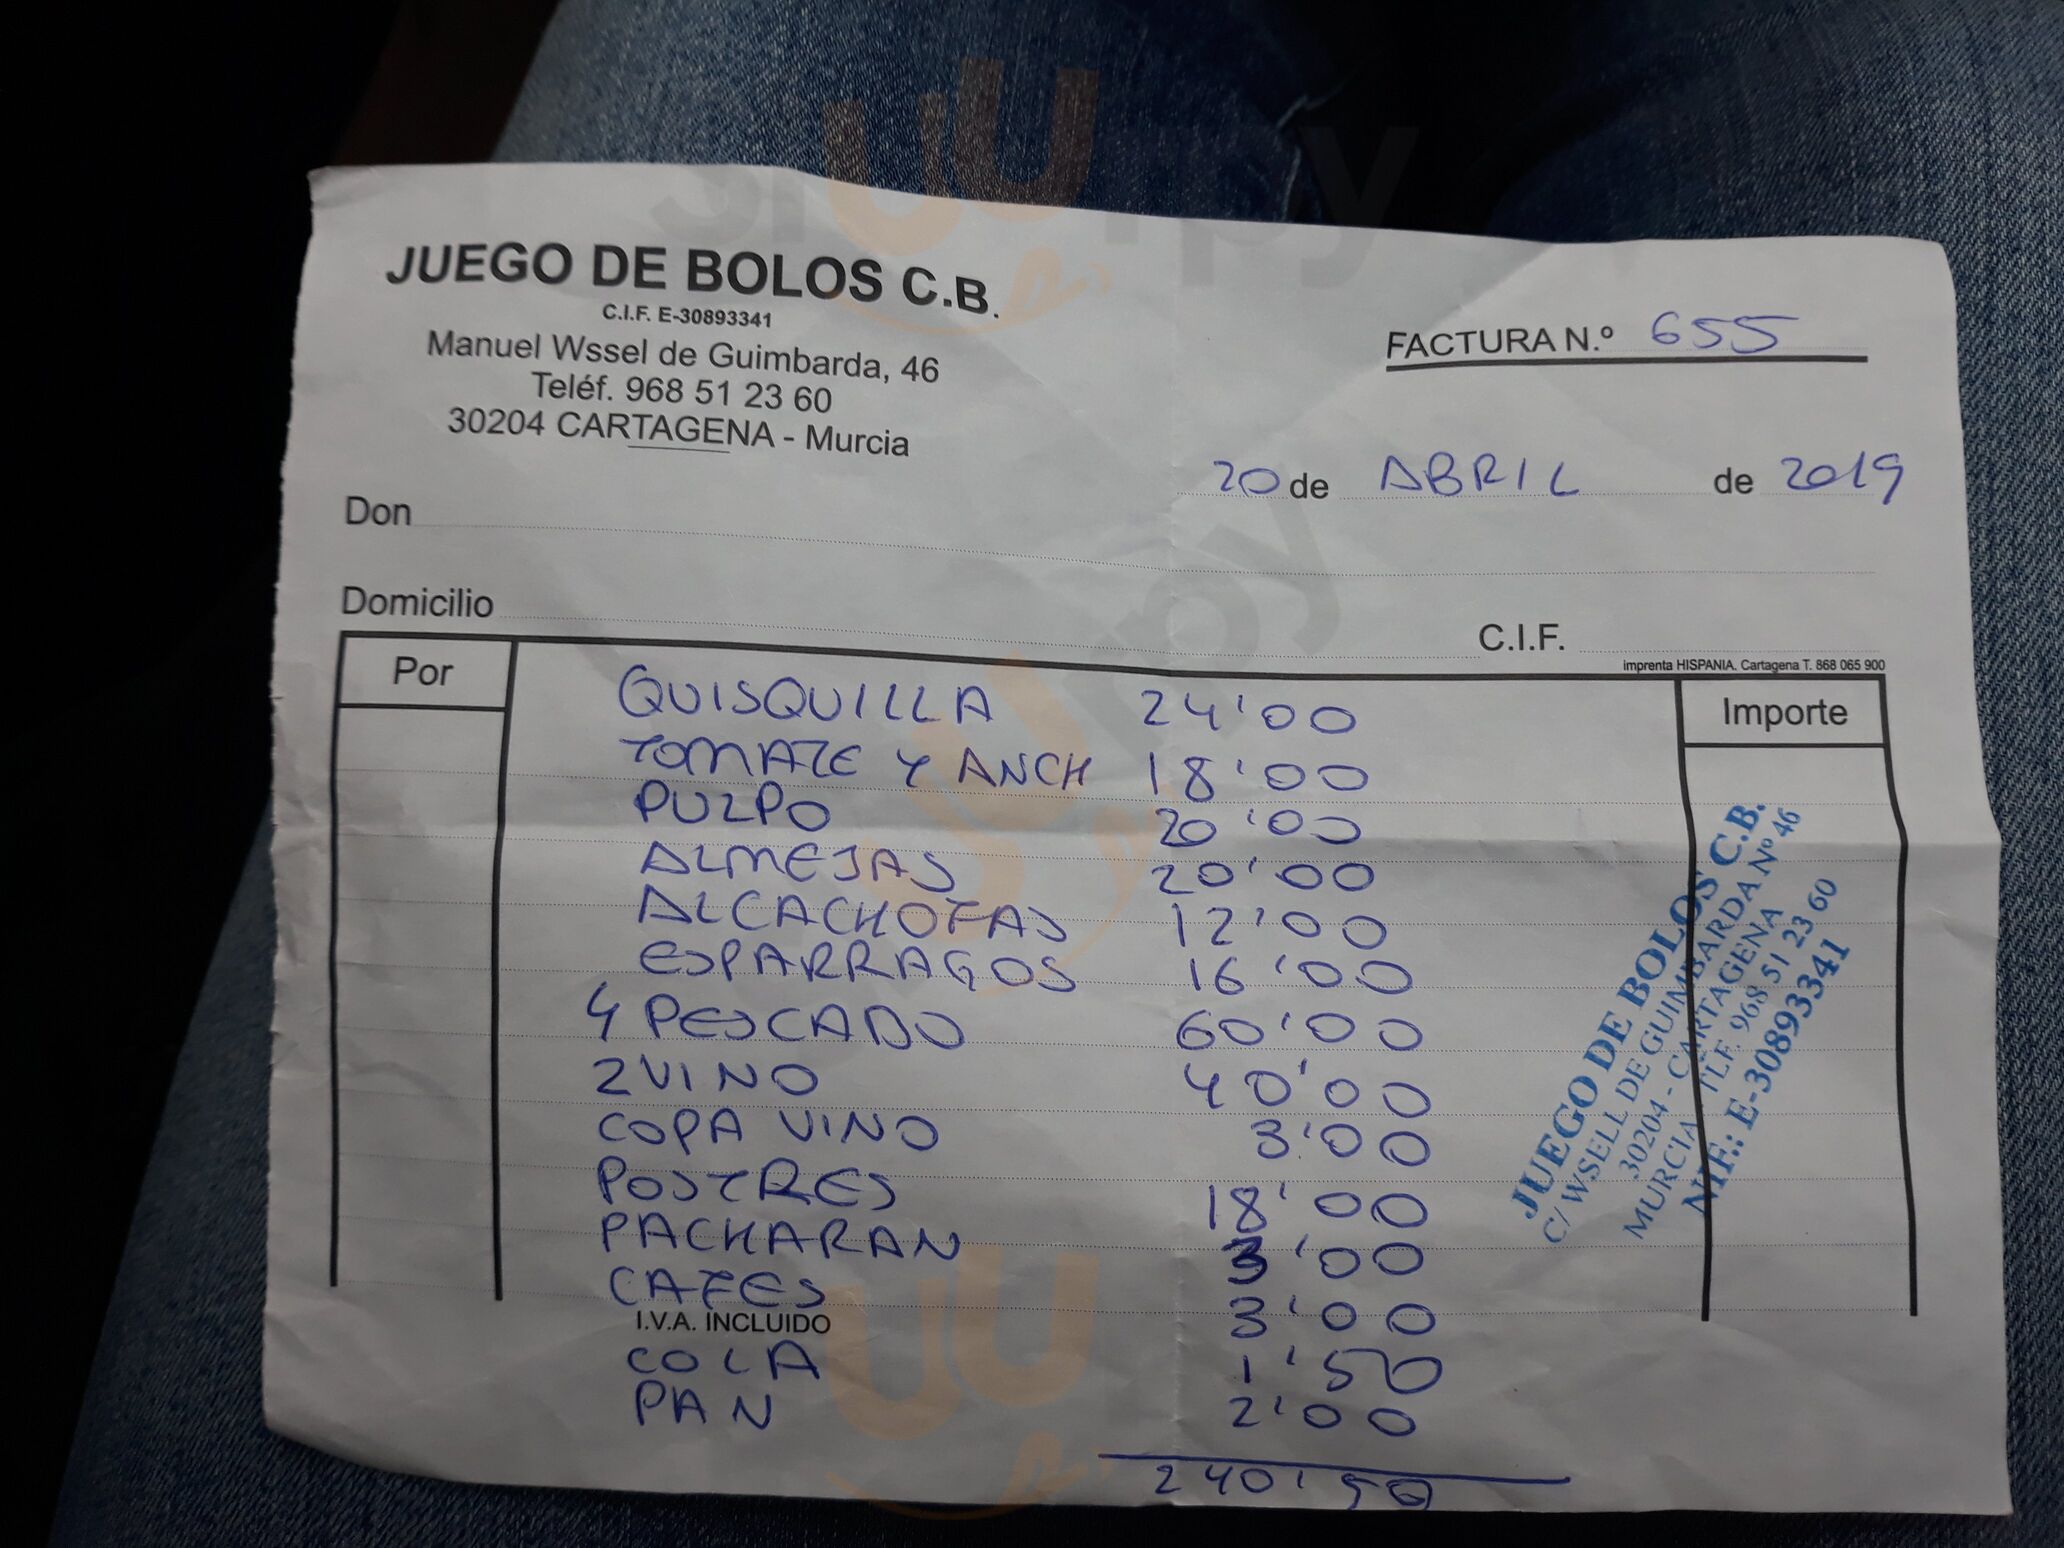 JUEGO DE BOLOS C.B.
C.I.F. E-30893341
Manuel Wssel de Guimbarda, 46
Teléf. 968 51 23 60
30204 CARTAGENA - Murcia
FACTURA N.º 655
20 de ABRIL de 2019
Don
Domicilio
C.I.F.
imprenta HISPANIA. Cartagena T. 868 065 900
Por
Importe
QUISQUILLA 24'00
TOMATE Y ANCH 18'00
PULPO 20'00
ALMEJAS 20'00
ALCACHOFAS 12'00
ESPARRAGOS 16'00
4 PESCADO 60'00
2 VINO 40'00
COPA VINO 3'00
POSTRES 18'00
PACHARAN 3'00
CAFES 3'00
I.V.A. INCLUIDO
COLA 1'50
PAN 2'00
240'50
JUEGO DE BOLOS C.B.
C/ WSELL DE GUIMBARDA Nº 46
30204 - CARTAGENA
MURCIA TLF. 968 51 23 60
NIF.: E-30893341